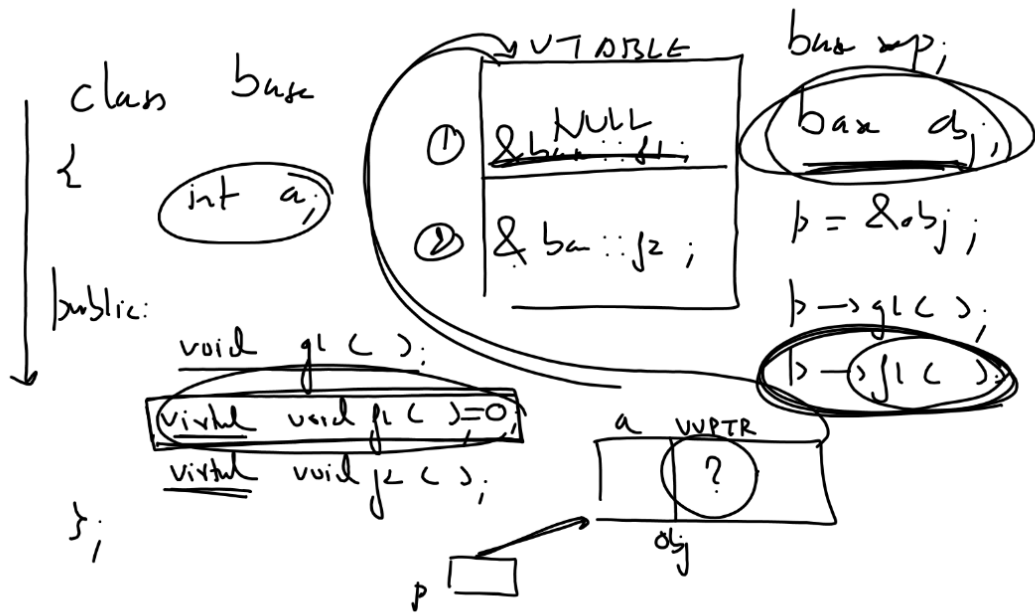 class base
{
int a;
public:
void g1 ( );
virtual void f1 ( )=0;
virtual void f2 ( );
};
VTABLE
① NULL
&base :: f1;
② & ba :: f2 ;
base *p;
base obj;
p = &obj ;
p → g1 ( );
p → f1 ( );
a VVPTR
?
obj
p